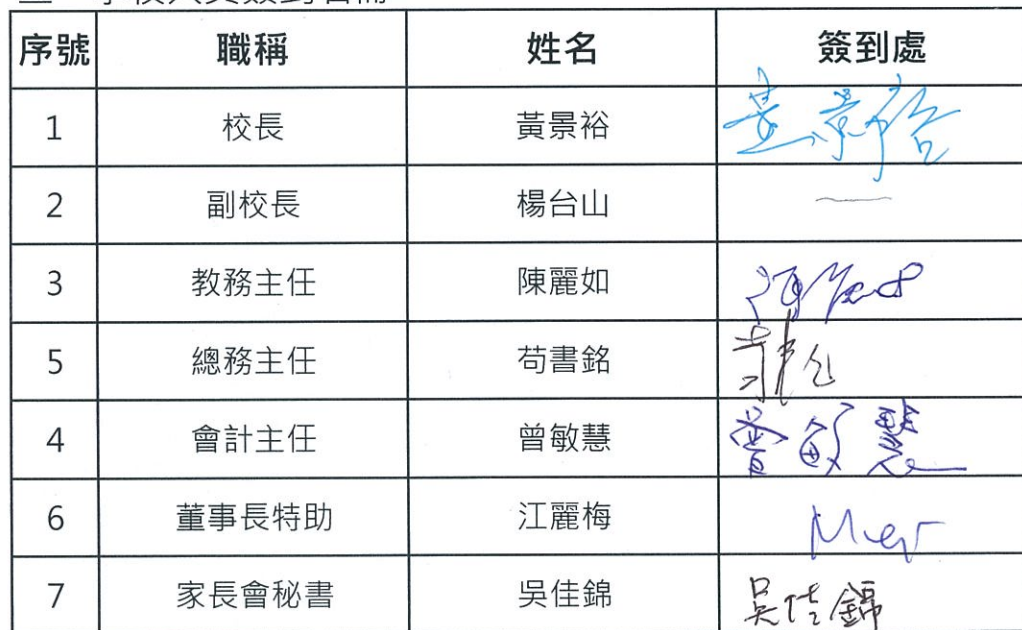 序號 職稱 姓名 簽到處
1 校長 黃景裕 黃景裕
2 副校長 楊台山 —
3 教務主任 陳麗如
5 總務主任 苟書銘
4 會計主任 曾敏慧 曾敏慧
6 董事長特助 江麗梅
7 家長會秘書 吳佳錦 吳佳錦